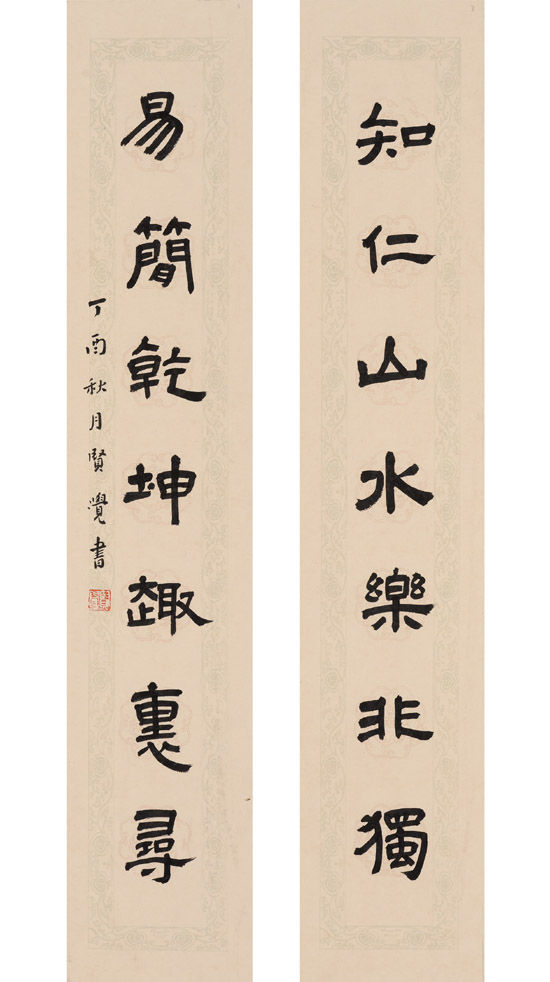 知仁山水樂非獨
易簡乾坤趣裏尋
丁酉秋月賢覺書